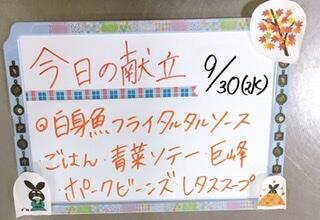 今日の献立 9/30(水)
◎白身魚フライタルタルソース
ごはん・青菜ソテー・巨峰
ポークビーンズ・レタススープ